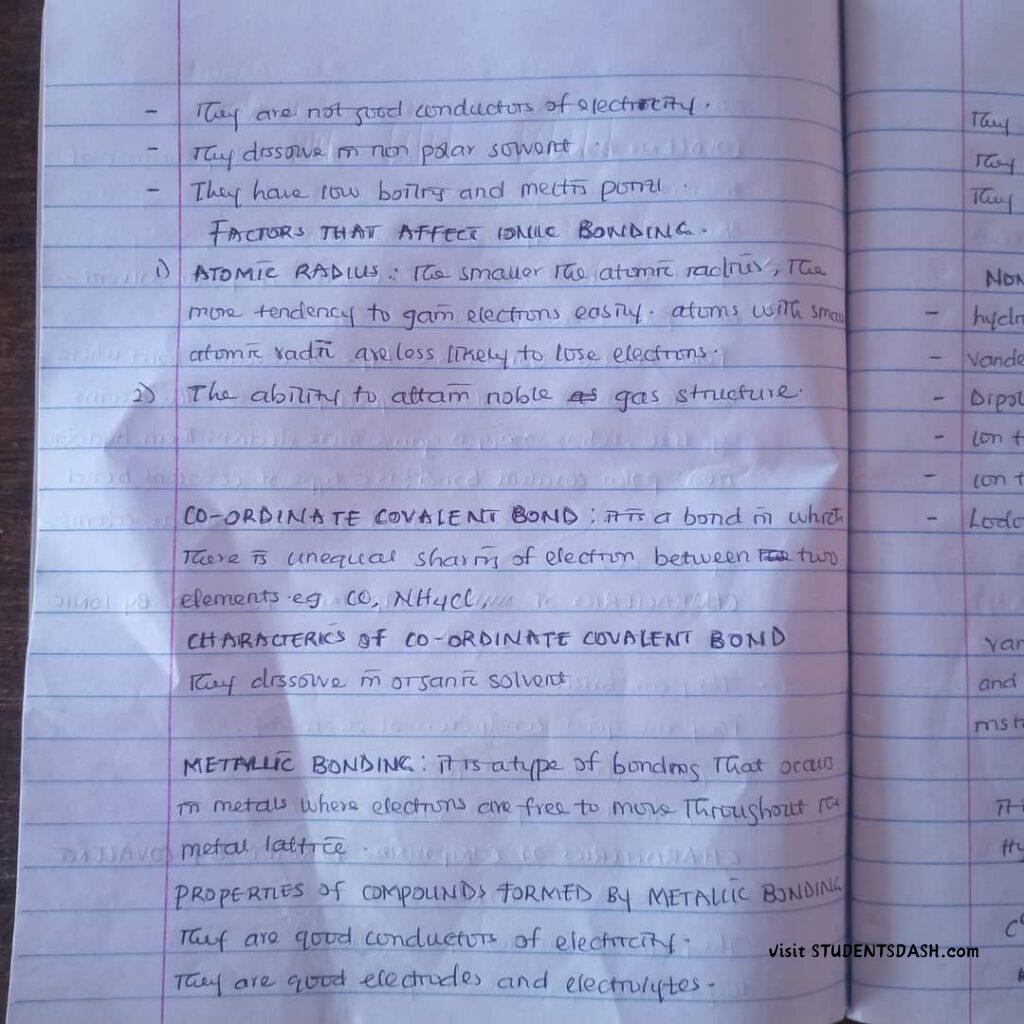 - They are not good conductors of electricity.
- They dissolve in non polar solvent.
- They have low boiling and melting point.
FACTORS THAT AFFECT IONIC BONDING.
1) ATOMIC RADIUS: The smaller the atomic radius, The
more tendency to gain electrons easily. atoms with small
atomic radii are less likely to lose electrons.
2) The ability to attain noble gas structure.
CO-ORDINATE COVALENT BOND: it is a bond in which
There is unequal sharing of electron between two
elements. eg CO, NH4Cl,
CHARACTERICS OF CO-ORDINATE COVALENT BOND
They dissolve in organic solvent
METALLIC BONDING: it is a type of bonding That occurs
in metals where electrons are free to move Throughout the
metal lattice.
PROPERTIES OF COMPOUNDS FORMED BY METALLIC BONDING
They are good conductors of electricity.
They are good electrodes and electrolytes.
They
They
They
NON
- hydr
- vande
- Dipol
- Ion
- Ion
-
van
and
Visit STUDENTSDASH.com